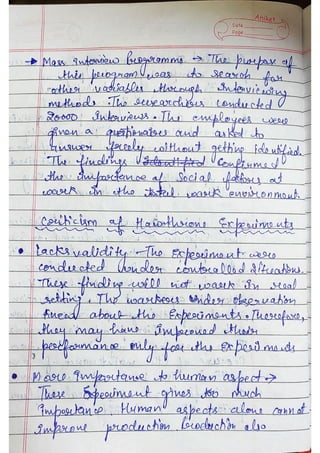 Aniket
Date
Page
→ Mass Interview Programme → The purpose of
this program was to search for
other variables through Interviewing
methods. The researchers conducted
20000 Interviews. The employees were
given a questionaires and asked to
answer freely without getting identified.
The findings Confirmed
the importance of Social factors at
work in the total work environment.
Criticism of Hawothrone Experiments
• Lacks validity - The Experiment were
conducted Under controlled situations.
These finding will not work in real
setting. The workers Under observation
knew about the Experiments. Therefore,
they may have Improved their
performance only for the experiments
• More Importance to human aspect →
These Experiment gives too much
Importance Human aspects alone cannot
improve production. Production also